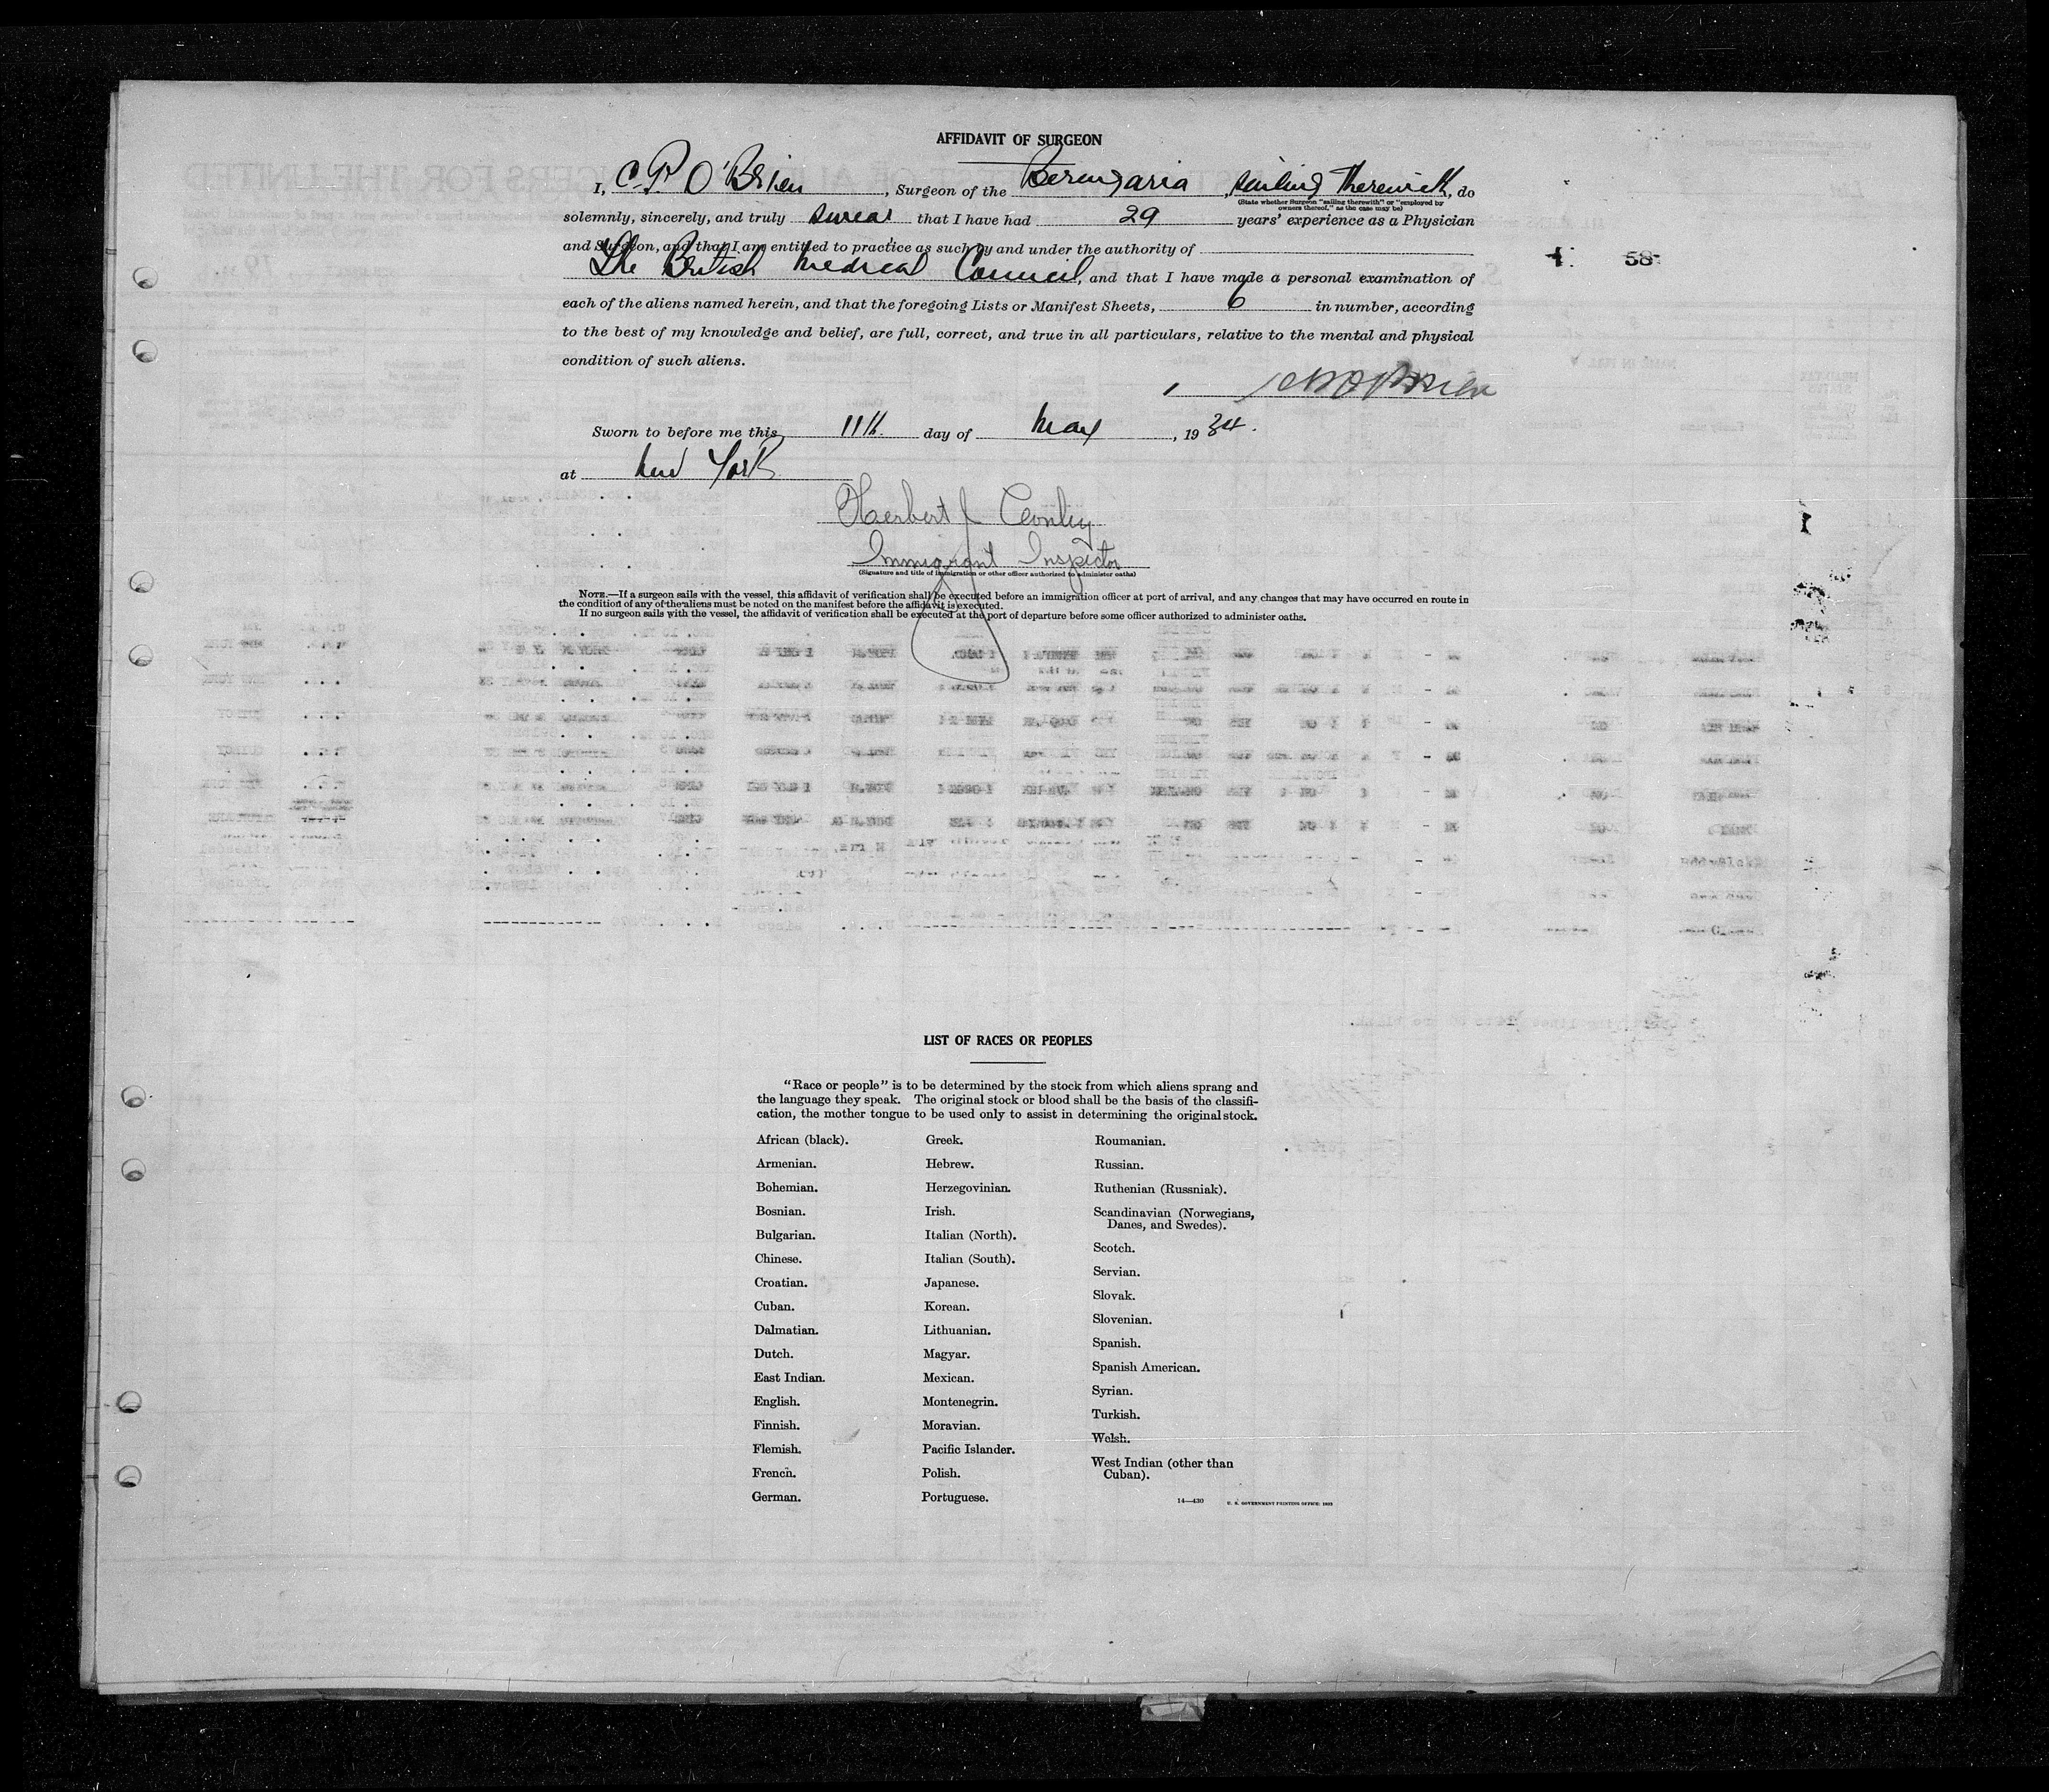 AFFIDAVIT OF SURGEON
I, C. P. O'Brien, Surgeon of the Berengaria, sailing therewith, do
(State whether Surgeon "sailing therewith" or "employed by
owners thereof," as the case may be)
solemnly, sincerely, and truly swear that I have had 29 years' experience as a Physician
and Surgeon, and that I am entitled to practice as such by and under the authority of
The British Medical Council, and that I have made a personal examination of
each of the aliens named herein, and that the foregoing Lists or Manifest Sheets, 6 in number, according
to the best of my knowledge and belief, are full, correct, and true in all particulars, relative to the mental and physical
condition of such aliens.
58
C P O'Brien
Sworn to before me this 11th day of May, 1934.
at New York
Herbert J Conley
Immigrant Inspector
(Signature and title of immigration or other officer authorized to administer oaths)
NOTE.—If a surgeon sails with the vessel, this affidavit of verification shall be executed before an immigration officer at port of arrival, and any changes that may have occurred en route in
the condition of any of the aliens must be noted on the manifest before the affidavit is executed.
If no surgeon sails with the vessel, the affidavit of verification shall be executed at the port of departure before some officer authorized to administer oaths.
LIST OF RACES OR PEOPLES
"Race or people" is to be determined by the stock from which aliens sprang and
the language they speak. The original stock or blood shall be the basis of the classifi-
cation, the mother tongue to be used only to assist in determining the original stock.
African (black).
Armenian.
Bohemian.
Bosnian.
Bulgarian.
Chinese.
Croatian.
Cuban.
Dalmatian.
Dutch.
East Indian.
English.
Finnish.
Flemish.
French.
German.
Greek.
Hebrew.
Herzegovinian.
Irish.
Italian (North).
Italian (South).
Japanese.
Korean.
Lithuanian.
Magyar.
Mexican.
Montenegrin.
Moravian.
Pacific Islander.
Polish.
Portuguese.
Roumanian.
Russian.
Ruthenian (Russniak).
Scandinavian (Norwegians,
Danes, and Swedes).
Scotch.
Servian.
Slovak.
Slovenian.
Spanish.
Spanish American.
Syrian.
Turkish.
Welsh.
West Indian (other than
Cuban).
14—430 U. S. GOVERNMENT PRINTING OFFICE: